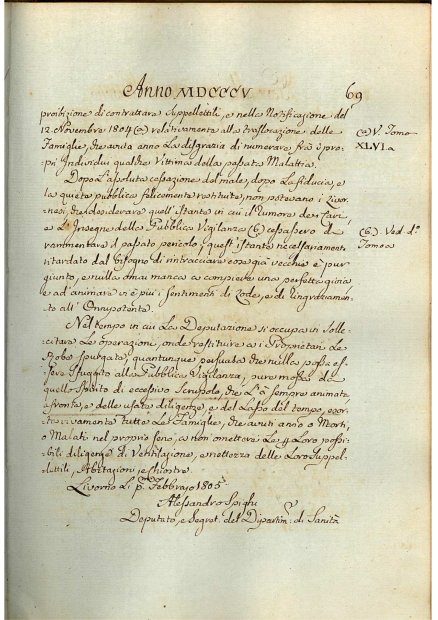 Anno MDCCCV 69
proibizione di contrattare Suppellettili, e nella Notificazione del
12. Novembre 1804 (a) relativamente alla traslocazione delle
(a) V. Tomo
Famiglie, che avuta anno La disgrazia di numerare frà i pro=
XLVI. a
prj Individui qualche Vittima della passata Malattia.
Dopo L'assoluta cessazione del male, dopo La fiducia, e
la quiete pubblica felicemente restituita, non potevano i Livor=
nesi, che desiderare quell'Istante in cui il rumore de
e Le Insegne della Pubblica Vigilanza (b) cessassero di
(b). Ved. dº
rammentare il passato pericolo; quest'istante necessariamente
Tomo a
ritardato dal bisogno di rintracciare cose già vecchie è pur
giunto, e nulla omai manca a compiere una perfetta gioia
e ad animare in è più i Sentimenti di Lode, e di ringraziamen=
to all'Onnipotente.
Nel tempo in cui La Deputazione si occupa in Solle=
citare Le operazioni, onde restituire a i Proprietarj Le
Robe spurgate, quantunque persuasa che nulla possa es=
sere sfuggito alla Pubblica Vigilanza, pure mossa da
quello spirito di eccessivo Scrupolo, che L'à sempre animata
a fronte, e delle usate diligenze, e del Lasso del tempo, esor=
ta vivamente tutte Le Famiglie, che avuti anno o Morti,
o Malati nel proprio seno, a non omettere Le Loro possi=
bili diligenze di Ventilazione, e nettezza delle Loro Suppel=
lettili, Abitazioni, e Chiostre.
Livorno Li pº. Febbrajo 1805.
Alessandro Spighi
Deputato, e Segret. del Dipartim.º di Sanità